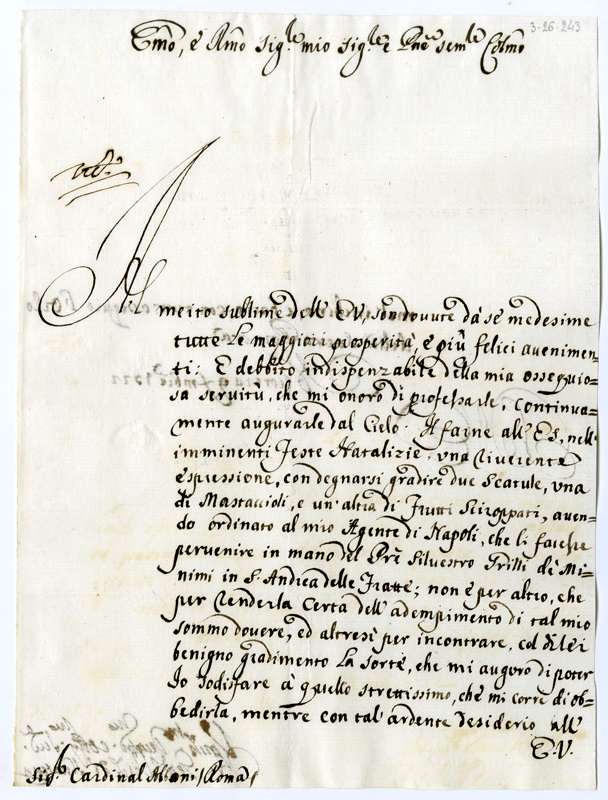 3-26-243
Emo, e Rmo Sig.re mio Sig.re e Pne sem.re Colmo
Al merito sublime dell'E.V. son dovute da sè medesime
tutte le maggiori prosperità, e più felici avenimen=
ti: E debbito indispenzabile della mia ossequio=
sa servitù, che mi onoro di professarle, continua=
mente augurarle dal Cielo. Il farne all'E.S. nell'
imminenti Feste Natalizie, una riverente
espressione, con degnarsi gradire due Scatule, una
di Mostaccioli, e un'altra di Frutti Sciroppati, aven=
do ordinato al mio Agente di Napoli, che li facesse
pervenire in mano del Pre Silvestro Trilli de Mi=
nimi in S. Andrea delle Fratte; non è per altro, che
per renderla certa dell'adempimento di tal mio
sommo dovere, ed altresì per incontrare, col di lei
benigno gradimento la sorte, che mi auguro di poter
Io sodisfare à quello strettissimo, che mi corre di ob=
bedirla, mentre con tal'ardente desiderio all'
E.V.
Sig.r Cardinal Alani / Roma /